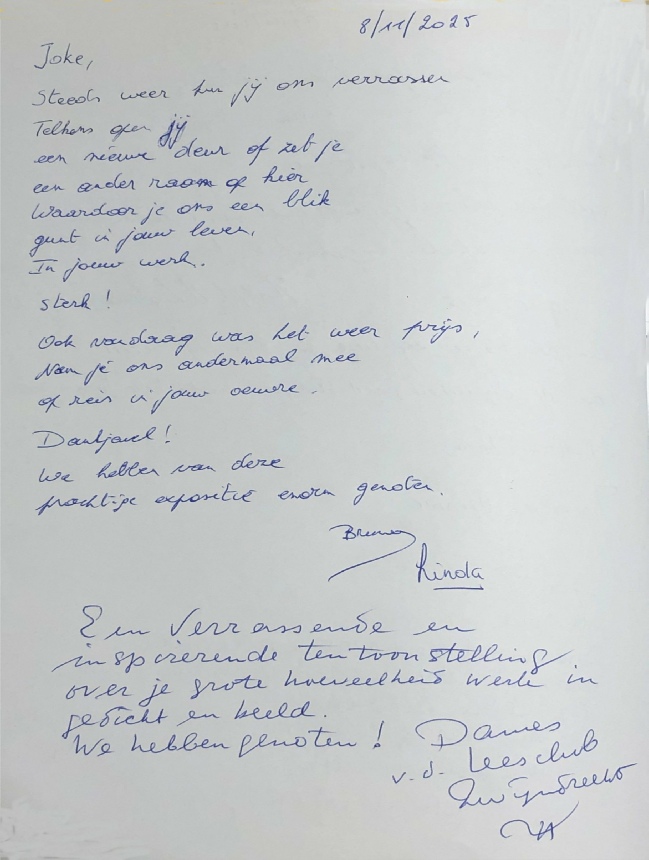 8/11/2025
Joke,
Steeds weer kun jij ons verrassen
Telkens open jij
een nieuwe deur of zet je
een ander raam op kier
Waardoor je ons een blik
gunt in jouw leven,
In jouw werk.
Sterk!
Ook vandaag was het weer prijs,
Nam je ons andermaal mee
op reis in jouw oeuvre.
Dankjewel!
We hebben van deze
prachtige expositie enorm genoten.
Bruno
Linda
Een verrassende en
inspirerende tentoonstelling
over je grote hoeveelheid werk in
gedicht en beeld.
We hebben genoten! Dames
v.d. Leesclub
Zwijndrecht